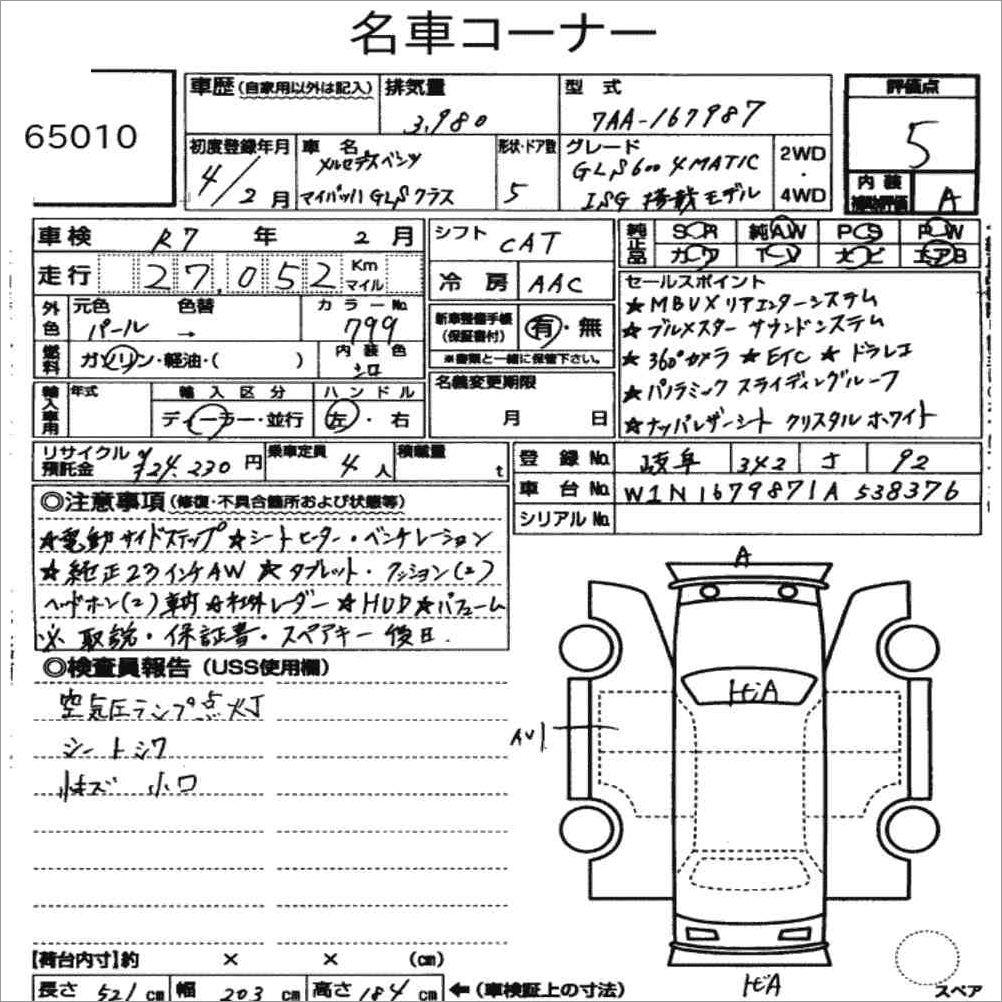 名車コーナー
65010
車歴 (自家用以外は記入)
排気量
3,980
型式
7AA-167987
評価点
5
初度登録年月
4/2月
車名
メルセデスベンツ
マイバッハ GLSクラス
形状・ドア数
5
グレード
GLS600 4MATIC
ISG 搭載モデル
2WD
・
4WD
内装
補助評価
A
車検 R7年 2月
走行 27,052 Km マイル
外色
元色 パール
色替 →
カラーNo. 799
燃料
ガソリン・軽油・( )
内装色
シロ
輸入車用
年式
輸入区分
ディーラー・並行
ハンドル
左・右
シフト CAT
冷房 AAC
新車整備手帳
(保証書付)
有・無
※書類と一緒に保管下さい。
名義変更期限
月 日
純正品
SR 純AW PS PW
カワ TV ナビ エアB
セールスポイント
★MBUXリアエンターシステム
★ブルメスター サウンドシステム
★360°カメラ ★ETC ★ドラレコ
★パノラミックスライディングルーフ
★ナッパレザーシート クリスタルホワイト
リサイクル
預託金
¥24,230円
乗車定員
4人
積載量
t
登録No. 岐阜 342 さ 92
車台No. W1N1679871A538376
シリアルNo.
◎注意事項 (修復・不具合箇所および状態等)
★電動サイドステップ ★シートヒーター・ベンチレーション
★純正23インチAW ★タブレット・クッション(2)
ヘッドホン(2)車内 ★社外レーダー ★HUD ★パフューム
※取説・保証書・スペアキー後日.
◎検査員報告 (USS使用欄)
空気圧ランプ点灯
シートシワ
小キズ 小凹
A
トビA
AU1
トビA
スペア
【荷台内寸】約 × × (cm)
長さ 521cm 幅 203cm 高さ 184cm ←(車検証上の寸法)